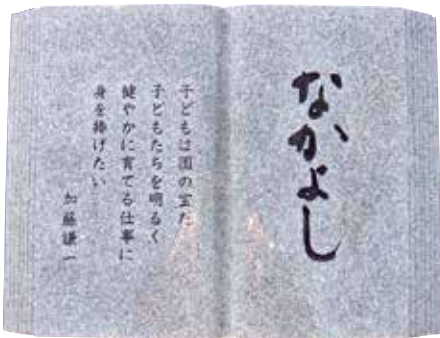 なかよし
子どもは国の宝だ
子どもたちを明るく
健やかに育てる仕事に
身を捧げたい
加藤謙一